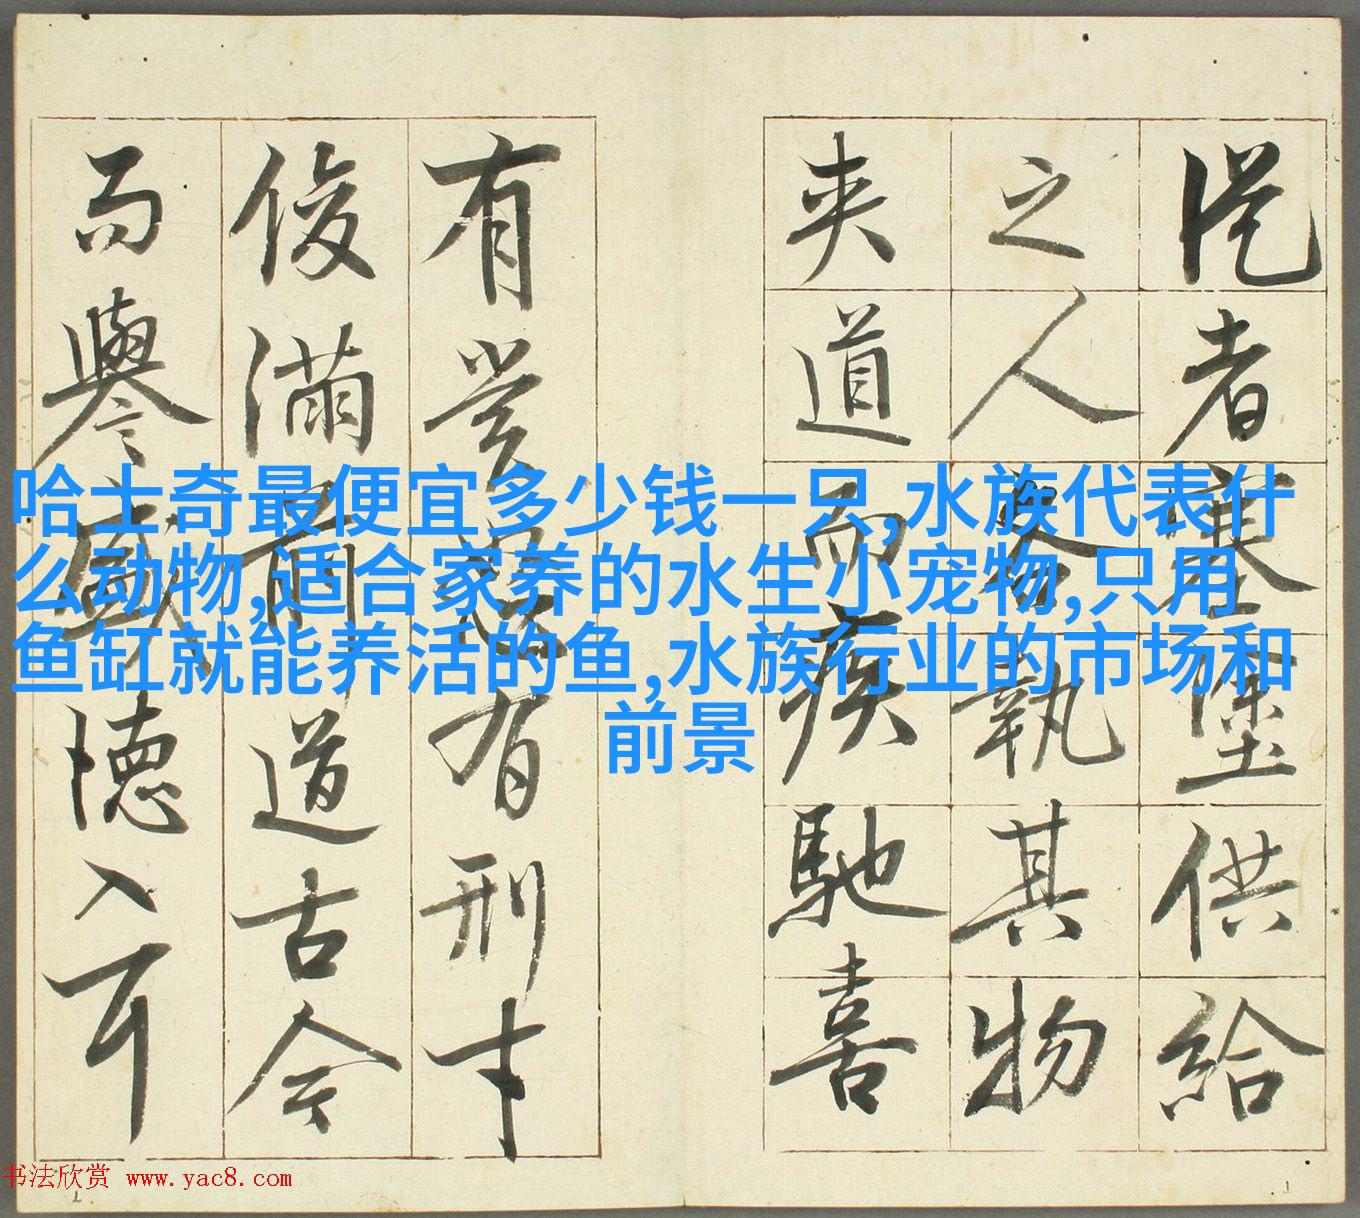 哈士奇最便宜多少钱一只,水族代表什
么动物,适合家养的水生小宠物,只用
鱼缸就能养活的鱼,水族行业的市场和
前景
從者塞塗供給
之人各執其物
夾道而疾馳喜
有賞怒有刑才
俊滿前道古今
而譽盛德入耳
书法欣赏 www.yac8.com